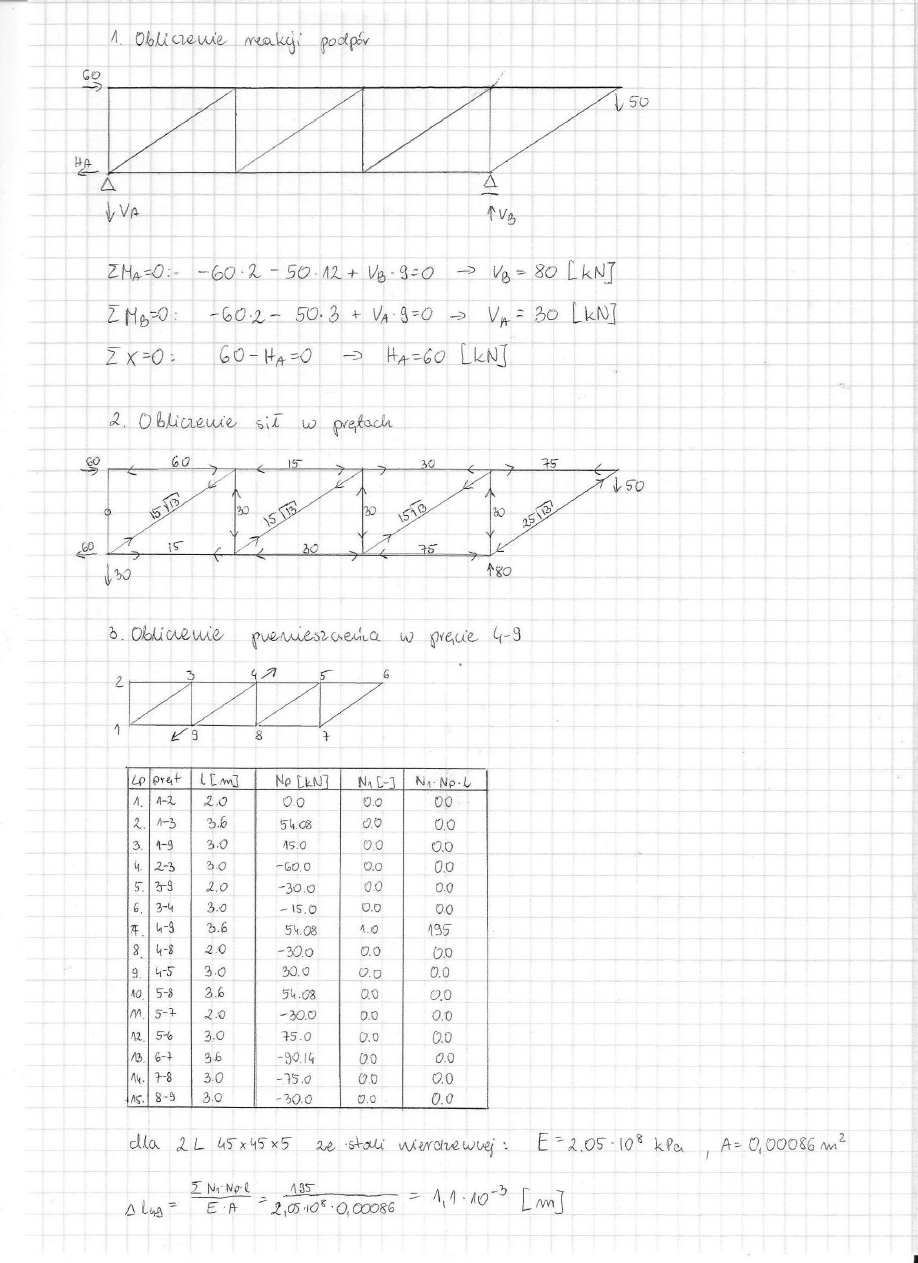 1. Obliczenie reakcji podpór
60
50
HA
VA
VB
ΣMA=0:- -60·2 - 50·12 + VB·9=0 → VB = 80 [kN]
ΣMB=0: -60·2 - 50·3 + VA·9=0 → VA = 30 [kN]
ΣX=0: 60-HA=0 → HA=60 [kN]
2. Obliczenie sił w prętach
60 60 15 30 75
50
15√13 30 15√13 30 15√13 30 25√13
0
60 15 30 75
30 80
3. Obliczenie przemieszczenia w pręcie 4-9
2 3 4 5 6
1 9 8 7
Lp pręt l [m] Np [kN] N1 [-] N1·Np·L
1. 1-2 2.0 0.0 0.0 0.0
2. 1-3 3.6 54.08 0.0 0.0
3. 1-9 3.0 15.0 0.0 0.0
4. 2-3 3.0 -60.0 0.0 0.0
5. 3-9 2.0 -30.0 0.0 0.0
6. 3-4 3.0 -15.0 0.0 0.0
7. 4-9 3.6 54.08 1.0 195
8. 4-8 2.0 -30.0 0.0 0.0
9. 4-5 3.0 30.0 0.0 0.0
10. 5-8 3.6 54.08 0.0 0.0
11. 5-7 2.0 -30.0 0.0 0.0
12. 5-6 3.0 75.0 0.0 0.0
13. 6-7 3.6 -90.14 0.0 0.0
14. 7-8 3.0 -75.0 0.0 0.0
15. 8-9 3.0 -30.0 0.0 0.0
dla 2L 45×45×5 ze stali nierdzewnej: E=2.05·10⁸ kPa, A=0,00086 m²
ΔL49 = ΣN1·Np·l / E·A = 195 / 2,05·10⁸·0,00086 = 1,1·10⁻³ [m]